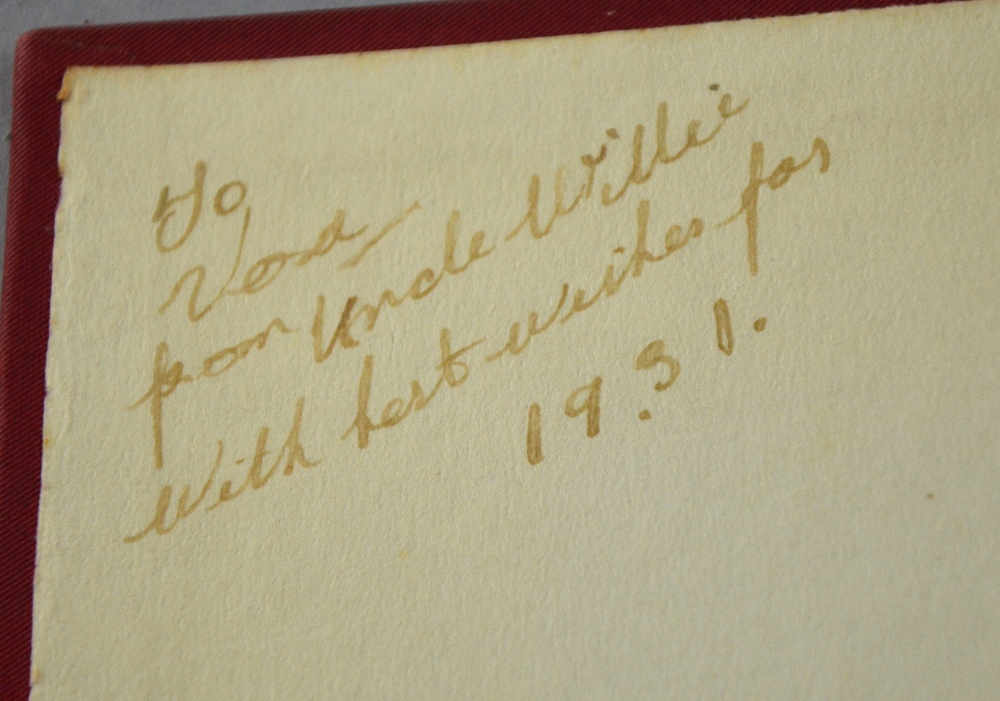 To
Vera
from Uncle Willie
With best wishes for
1931.